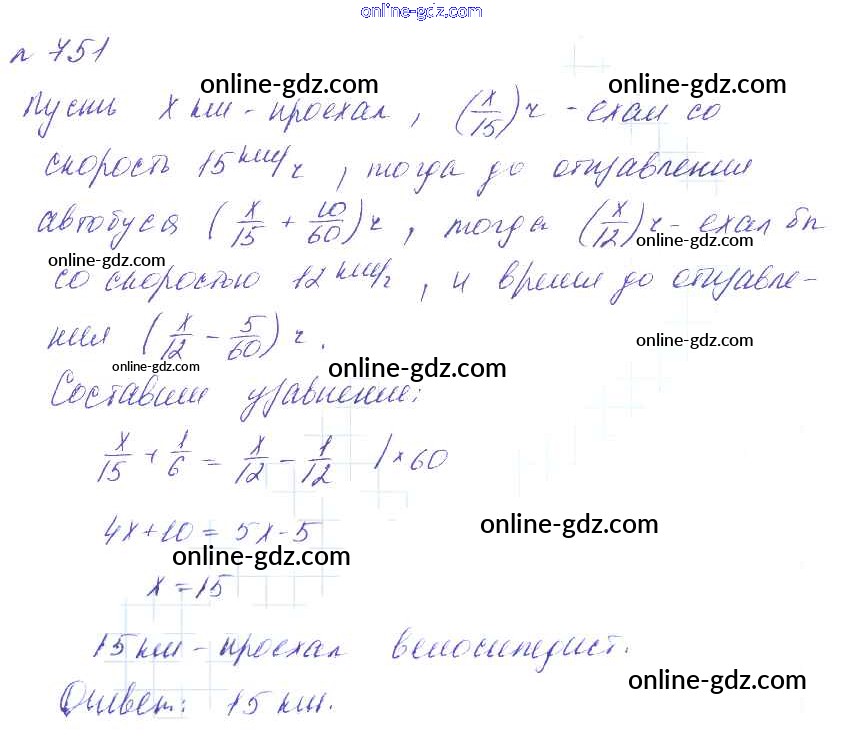 online-gdz.com
n 751
online-gdz.com online-gdz.com
Пусть x км - проехал, (x/15) ч - ехал со
скорость 15 км/ч, тогда до отправления
автобуса (x/15 + 10/60) ч, тогда (x/12) ч - ехал бы
online-gdz.com
со скоростью 12 км/ч, и время до отправле-
online-gdz.com
ния (x/12 - 5/60) ч.
online-gdz.com online-gdz.com online-gdz.com
Составим уравнение:
x/15 + 1/6 = x/12 - 1/12 |×60
4x+10=5x-5
online-gdz.com
online-gdz.com
x=15
15 км - проехал велосипедист.
online-gdz.com
Ответ: 15 км.